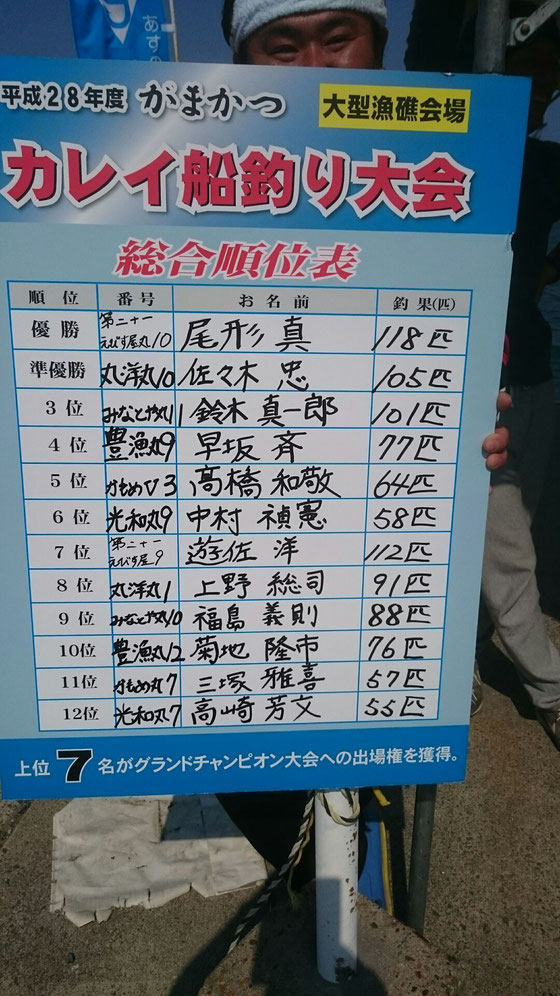 あすの
平成28年度 がまかつ 大型漁礁会場
カレイ船釣り大会
総合順位表
順位 番号 お名前 釣果(匹)
優勝 第二十一えびす屋丸10 尾形 真 118匹
準優勝 丸洋丸10 佐々木 忠 105匹
3位 みなとや丸11 鈴木 真一郎 101匹
4位 豊漁丸9 早坂 斉 77匹
5位 かもめ 3 高橋 和敬 64匹
6位 光和丸9 中村 禎憲 58匹
7位 第二十一えびす屋9 遊佐 洋 112匹
8位 丸洋丸1 上野 総司 91匹
9位 みなとや丸10 福島 義則 88匹
10位 豊漁丸12 菊地 隆市 76匹
11位 かもめ丸7 三塚 雅喜 57匹
12位 光和丸7 高崎 芳文 55匹
上位7名がグランドチャンピオン大会への出場権を獲得。